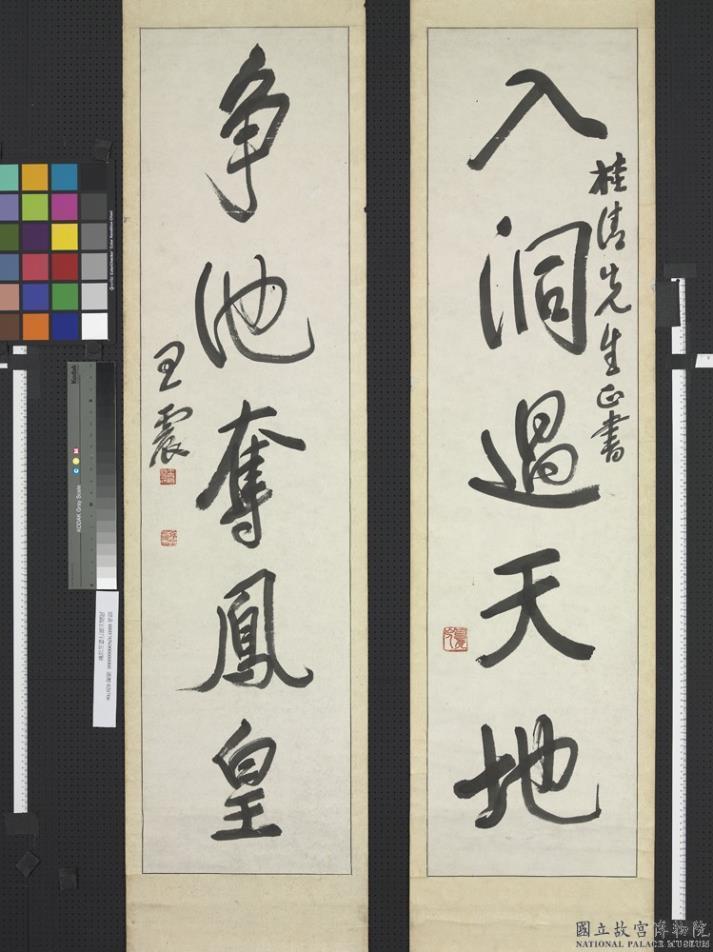 入洞過天地
桂清先生正書
爭池奪鳳皇
王震
Kodak
KODAK Gray Scale
國立故宮博物院
NATIONAL PALACE MUSEUM